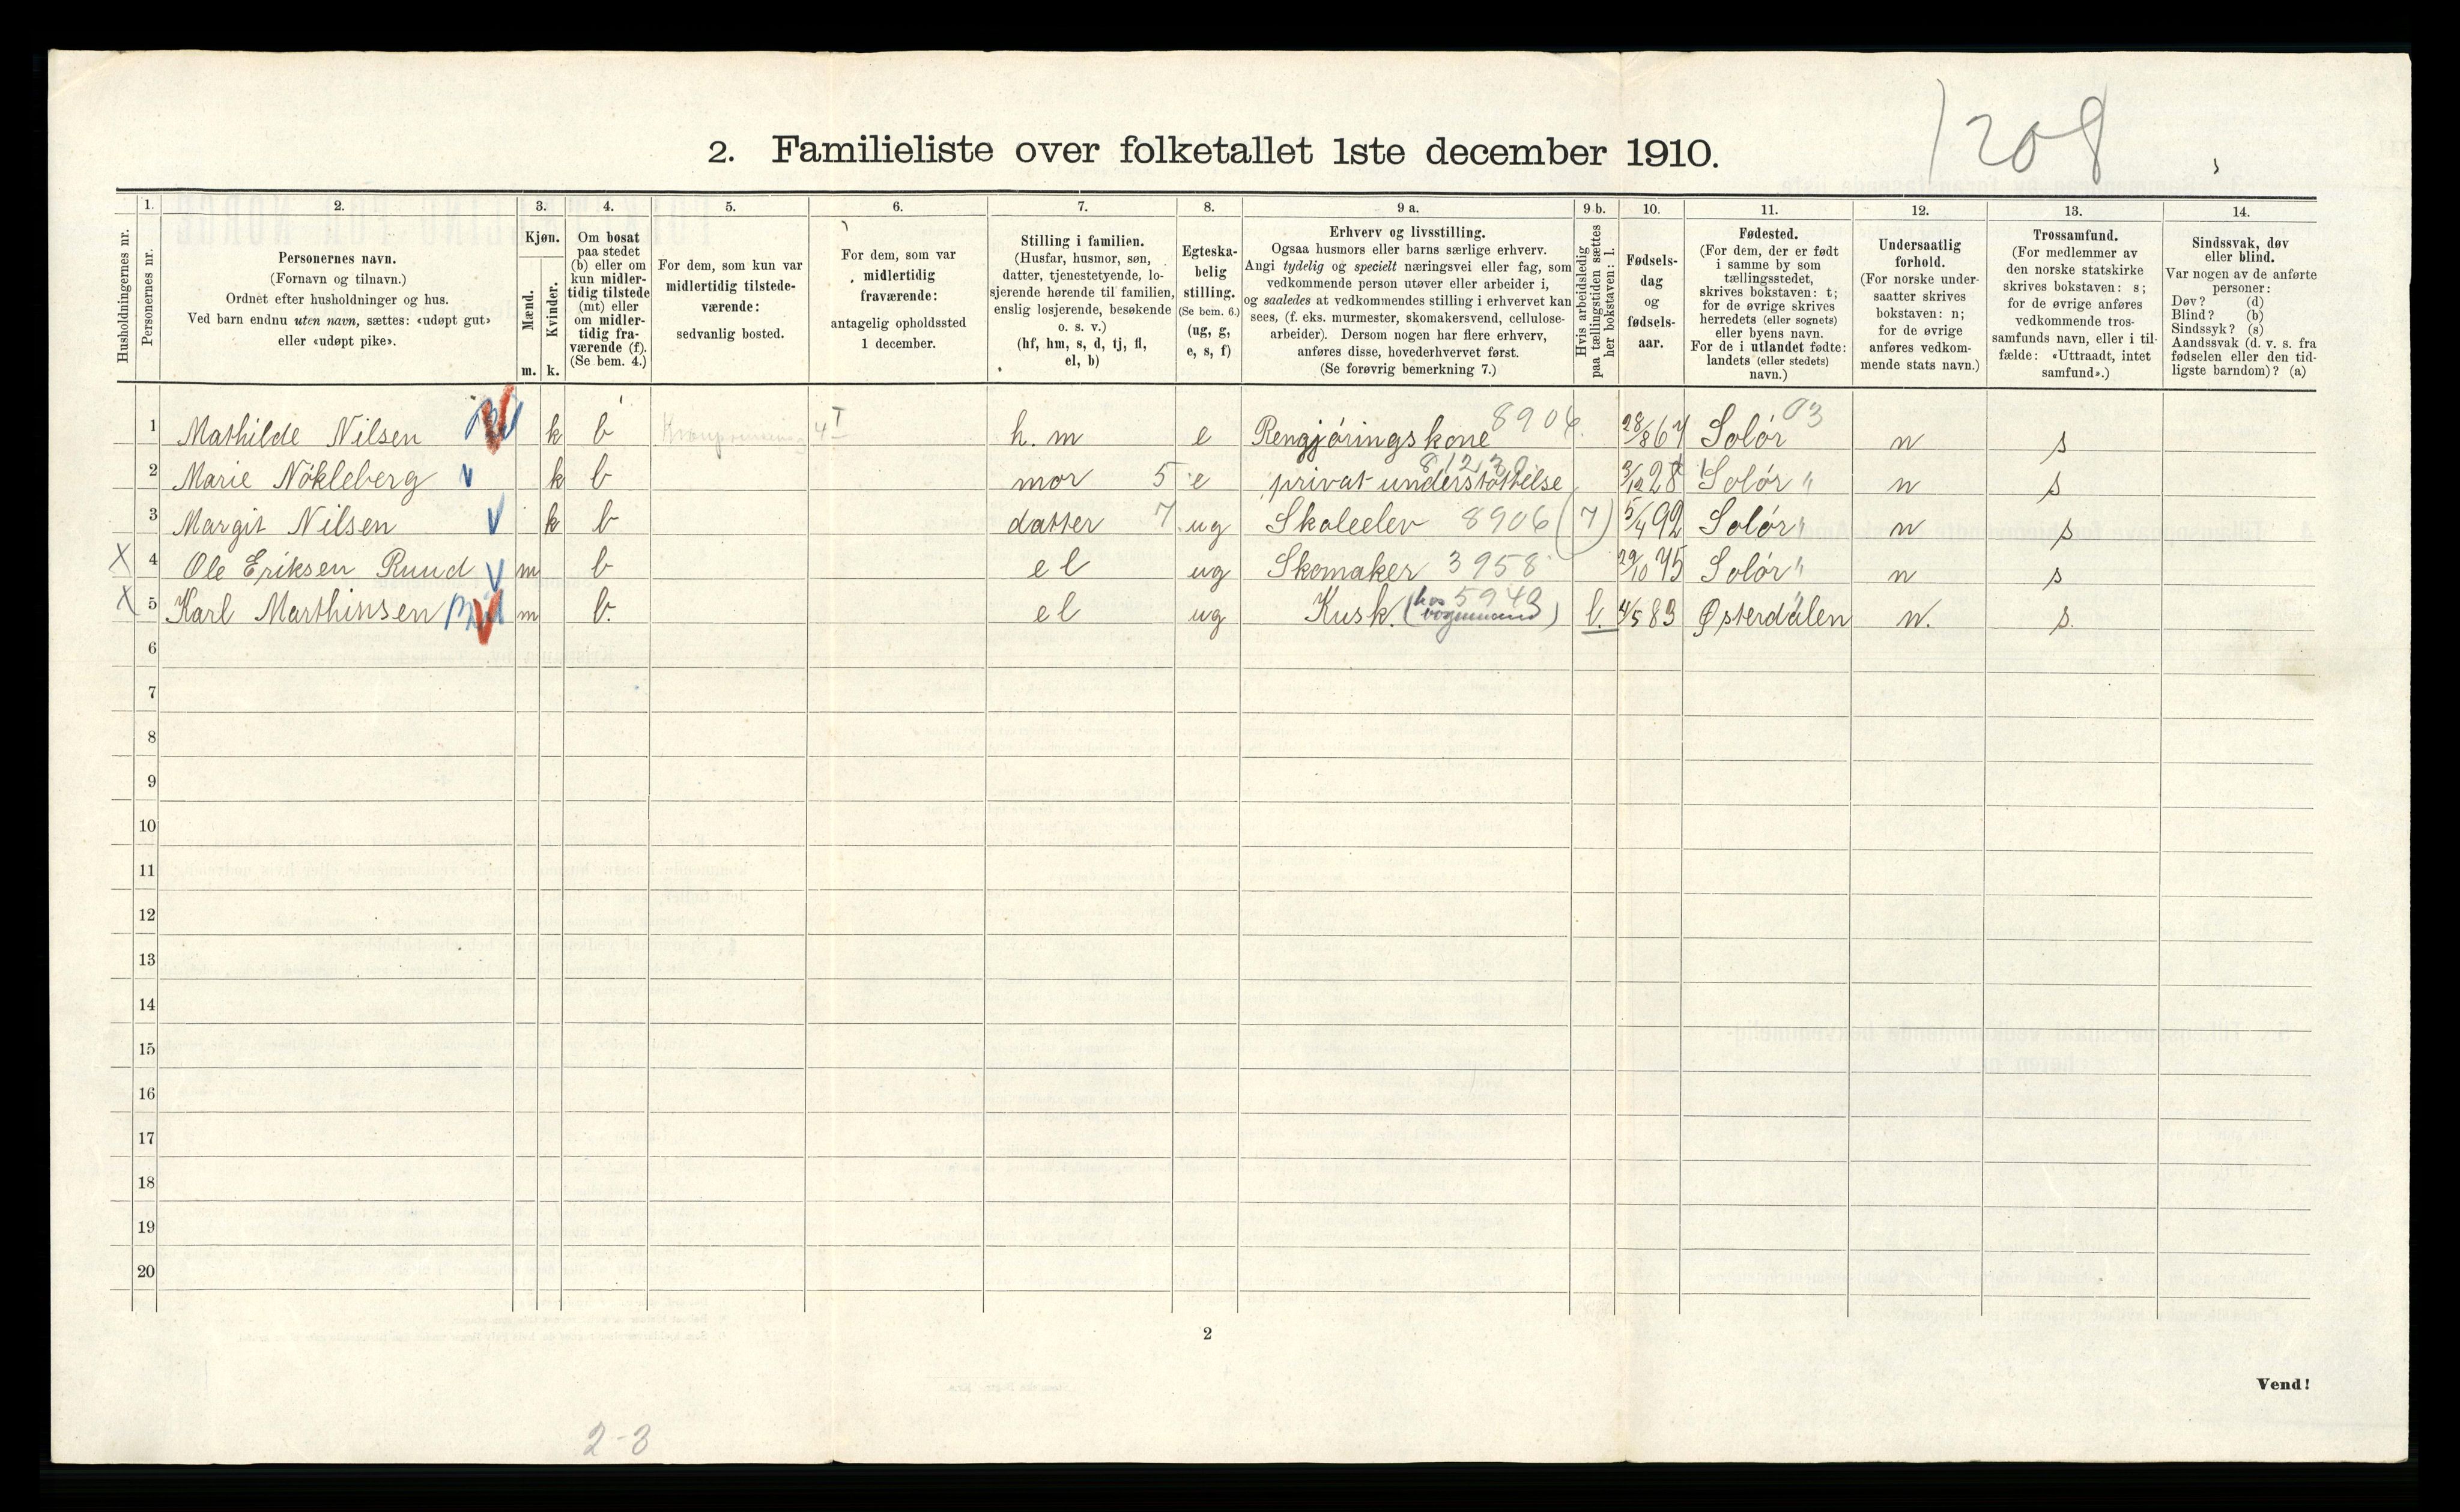 1208
2. Familieliste over folketallet 1ste december 1910.
Husholdningernes nr.
1.
Personernes nr.
2.
Personernes navn.
(Fornavn og tilnavn.)
Ordnet efter husholdninger og hus.
Ved barn endnu uten navn, sættes: «udøpt gut»
eller «udøpt pike».
3.
Kjøn.
Mænd.
Kvinder.
m. k.
4.
Om bosat
paa stedet
(b) eller om
kun midler-
tidig tilstede
(mt) eller
om midler-
tidig fra-
værende (f).
(Se bem. 4.)
5.
For dem, som kun var
midlertidig tilstede-
værende:
sedvanlig bosted.
6.
For dem, som var
midlertidig
fraværende:
antagelig opholdssted
1 december.
7.
Stilling i familien.
(Husfar, husmor, søn,
datter, tjenestetyende, lo-
sjerende hørende til familien,
enslig losjerende, besøkende
o. s. v.)
(hf, hm, s, d, tj, fl,
el, b)
8.
Egteska-
belig
stilling.
(Se bem. 6.)
(ug, g,
e, s, f)
9 a.
Erhverv og livsstilling.
Ogsaa husmors eller barns særlige erhverv.
Angi tydelig og specielt næringsvei eller fag, som
vedkommende person utøver eller arbeider i,
og saaledes at vedkommendes stilling i erhvervet kan
sees, (f. eks. murmester, skomakersvend, cellulose-
arbeider). Dersom nogen har flere erhverv,
anføres disse, hovederhvervet først.
(Se forøvrig bemerkning 7.)
9 b.
Hvis arbeidsledig
paa tællingstiden sættes
her bokstaven: l.
10.
Fødsels-
dag
og
fødsels-
aar.
11.
Fødested.
(For dem, der er født
i samme by som
tællingsstedet,
skrives bokstaven: t;
for de øvrige skrives
herredets (eller sognets)
eller byens navn.
For de i utlandet fødte:
landets (eller stedets)
navn.)
12.
Undersaatlig
forhold.
(For norske under-
saatter skrives
bokstaven: n;
for de øvrige
anføres vedkom-
mende stats navn.)
13.
Trossamfund.
(For medlemmer av
den norske statskirke
skrives bokstaven: s;
for de øvrige anføres
vedkommende tros-
samfunds navn, eller i til-
fælde: «Uttraadt, intet
samfund».)
14.
Sindssvak, døv
eller blind.
Var nogen av de anførte
personer:
Døv? (d)
Blind? (b)
Sindssyk? (s)
Aandssvak (d. v. s. fra
fødselen eller den tid-
ligste barndom)? (a)
1 Mathilde Nilsen k b h. m e Rengjøringskone 8906 28/8 67 Solør 03 n s
2 Marie Nökleberg v k b mor 5 e privat understöttelse 3/12 28 Solör " n s
3 Margit Nilsen V k b datter 7 ug Skoleelev 8906 (7) 5/4 92 Solör " n s
X 4 Ole Eriksen Ruud V m b el ug Skomaker 3958 29/10 45 Solör " n s
X 5 Karl Marthinsen m b. el ug Kusk. (hos vognmand) 5940 l. 4/5 83 Østerdalen n. s.
6
7
8
9
10
11
12
13
14
15
16
17
18
19
20
2
Vend!
2-3